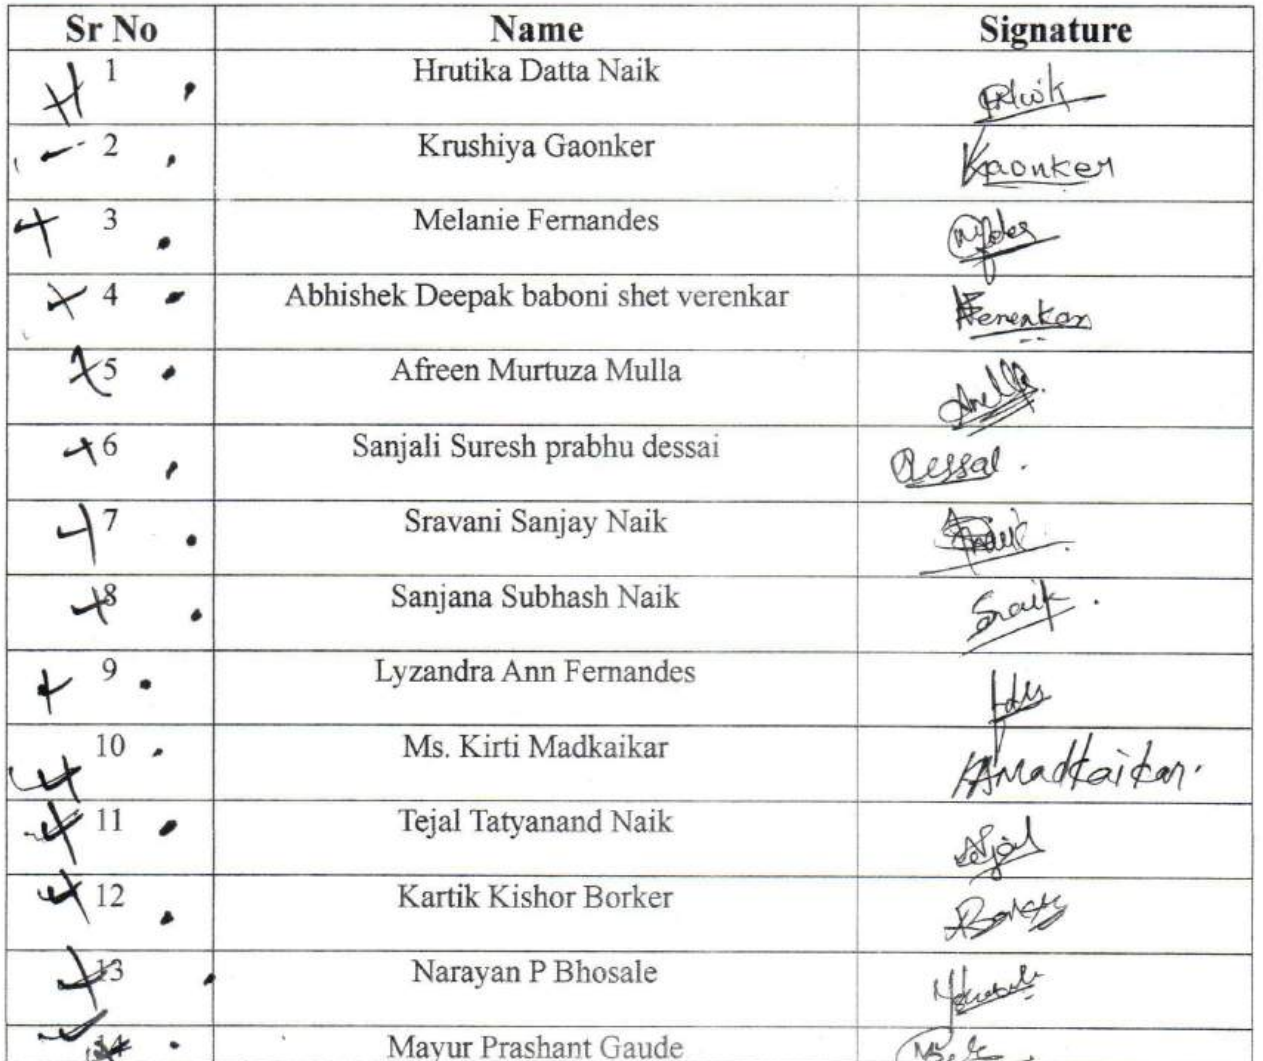 Sr No Name Signature
1 Hrutika Datta Naik
2 Krushiya Gaonker Kaonker
3 Melanie Fernandes
4 Abhishek Deepak baboni shet verenkar Verenkar
5 Afreen Murtuza Mulla
6 Sanjali Suresh prabhu dessai
7 Sravani Sanjay Naik
8 Sanjana Subhash Naik Snaik
9 Lyzandra Ann Fernandes
10 Ms. Kirti Madkaikar KAMadkaikar.
11 Tejal Tatyanand Naik
12 Kartik Kishor Borker
13 Narayan P Bhosale
14 Mayur Prashant Gaude